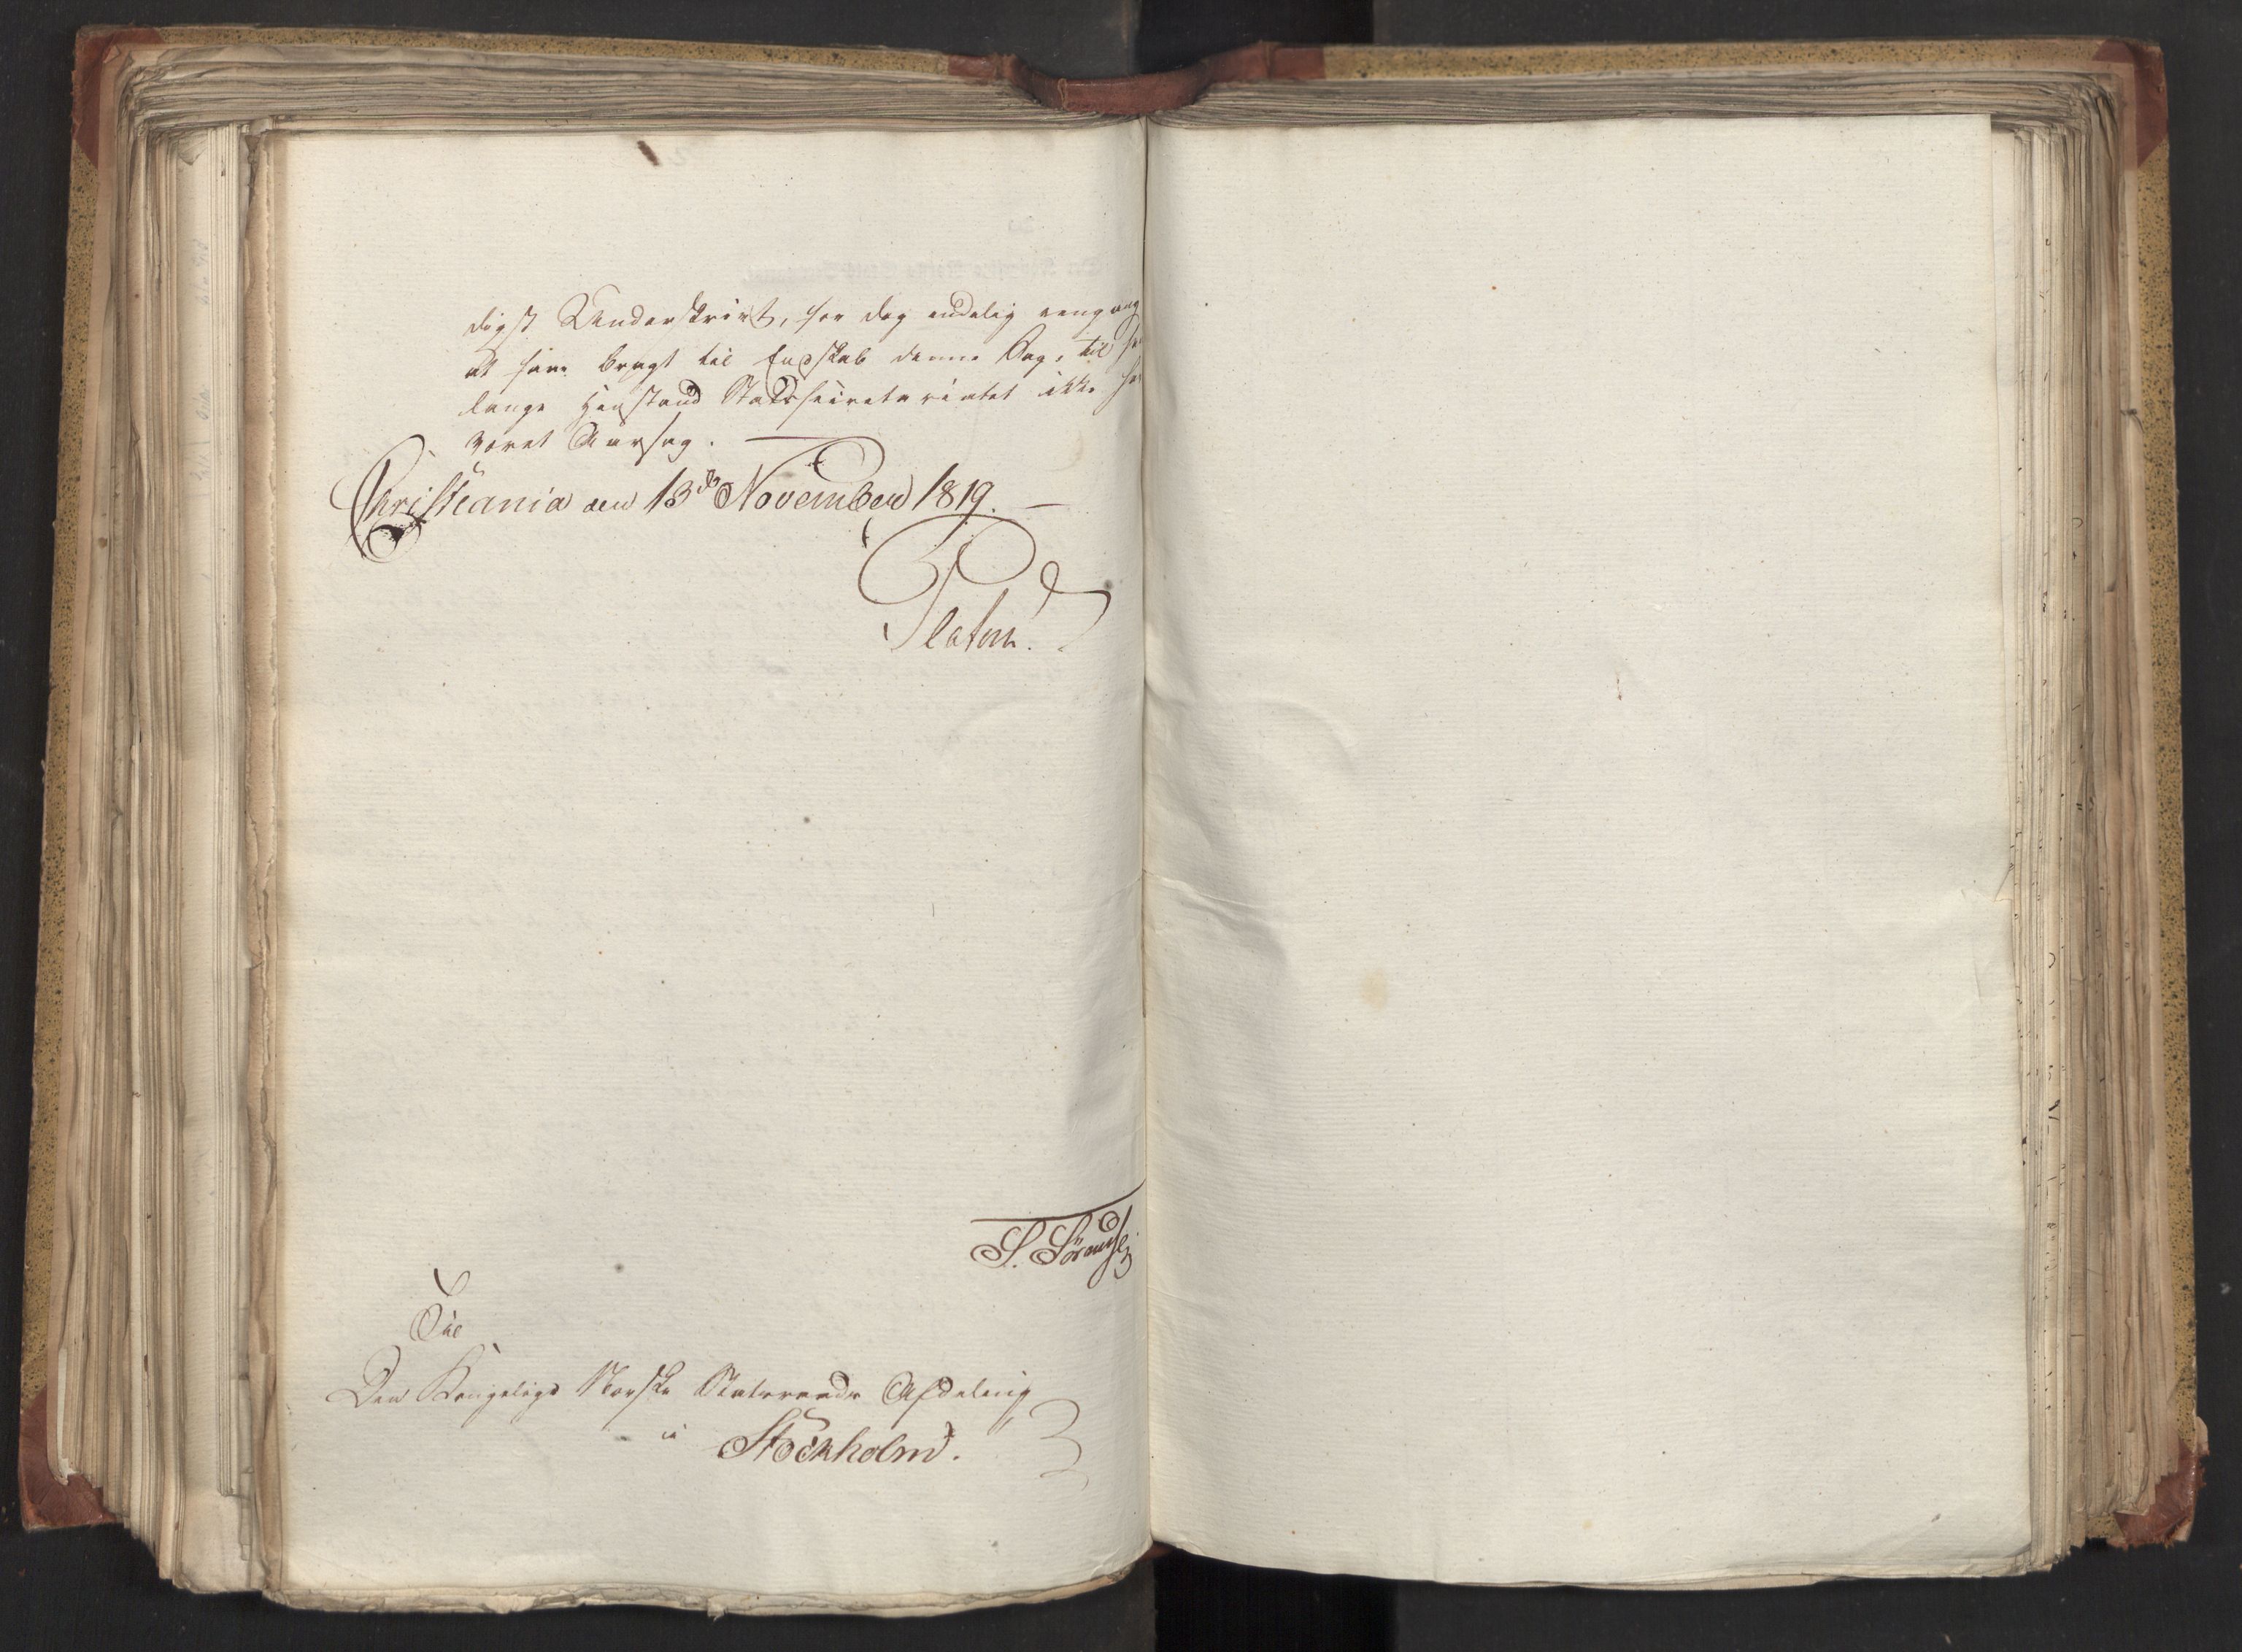 digst Underskrivt, for dog endelig eengang
at have bragt til Endskab denne Sag, til
lange Henstand Statssecretariatet ikke
været Aarsag.
Christiania den 13de November 1819.
Platou.
S. Sörensen
Til
Den Kongelige Norske Statsraads Afdeling
i Stockholm.